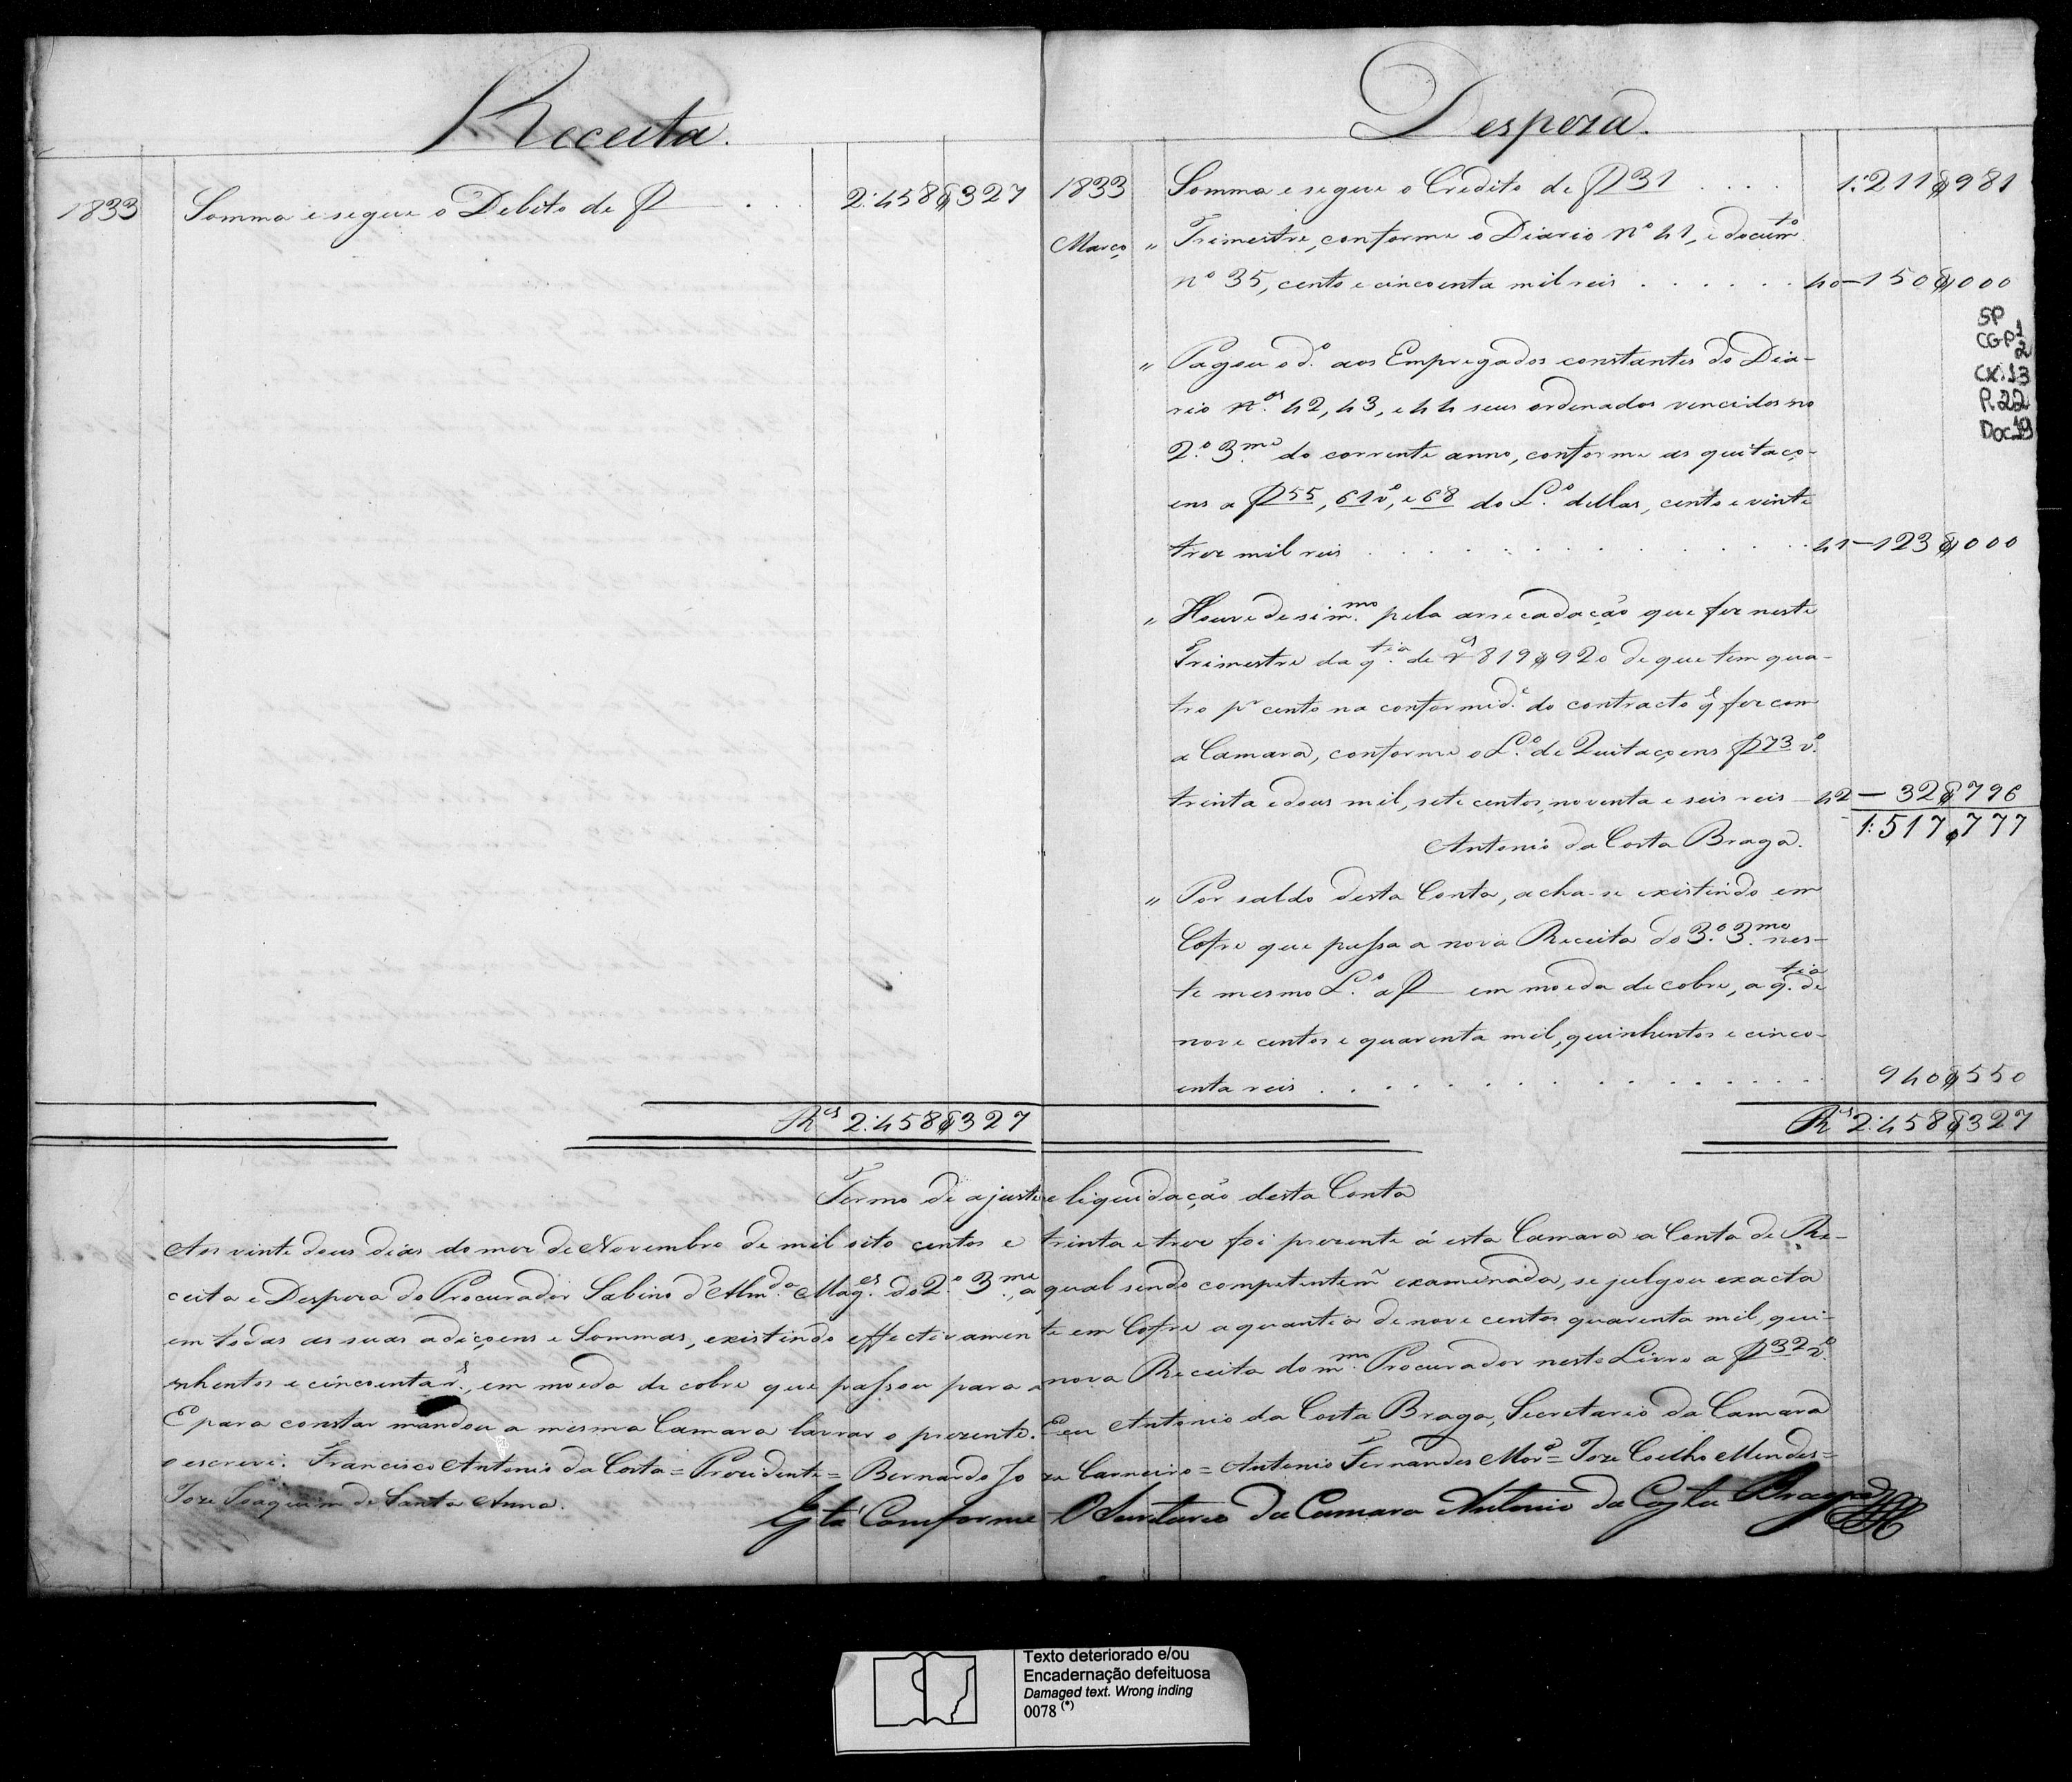 Receita.
1833 Somma e segue o Debito de f . . . 2:458$327
Despeza.
1833 Somma e segue o Credito de f 31 . . . . 1:211$981
Março " Trimestre, conforme o Diario Nº 41, e docum.to
nº 35, cento e cincoenta mil reis . . . . . . 40-150$000
" Pagou o d.º aos Empregados constantes do Dia-
rio n.os 42, 43, e 44 seus ordenados vencidos no
2.º 3.me do corrente anno, conforme as quitaço-
ens a f 55, 61vº, e 68 do L.º dellas, cento e vinte
trez mil reis . . . . . . . . . . . . 41-123$000
" Houve de si m.mo pela arrecadação que fez neste
Trimestre da q.tia de rs 819$920 de que tem qua-
tro pr cento na conformid.e do contracto q̃ fez com
a Camara, conforme o L.º de Quitaçoens f 73 v.º
trinta e dous mil, sete centos, noventa e seis reis - 42 - 32$796
1:517$777
Antonio da Costa Braga.
" Por saldo desta Conta, acha-se existindo em
Cofre que passa a nova Receita do 3.º 3.me nes-
te mesmo L.º a f em moeda de cobre, a q.tia de
nove centos e quarenta mil, quinhentos e cinco-
enta reis . . . . . . . . . . . . . . . 940$550
Rs 2:458$327
Rs 2:458$327
SP
CGP 1
2
CX.13
P.22
Doc.19
Termo de ajuste e liquidação desta Conta
Aos vinte dous dias do mez de Novembro de mil oito centos e trinta e trez foi prezente á esta Camara a Conta de Re-
ceita e Despeza do Procurador Sabino d'Alm.da Mag.es do 2.º 3.me, a qual sendo competentem̃ examinada, se julgou exacta
em todas as suas adiçoens e Sommas, existindo effectivamente em Cofre a quantia de nove centos quarenta mil, qui-
nhentos e cincoenta rs., em moeda de cobre que passou para a nova Receita do m.mo Procurador neste Livro a f 32 v.º
E para constar mandou a mesma Camara lavrar o prezente. E eu Antonio da Costa Braga, Secretario da Camara
o escrevi. Francisco Antonio da Costa = Prezidente = Bernardo Joze Carneiro = Antonio Fernandes Mor.ª = Joze Coelho Mendes =
Joze Joaquim de Santa Anna.
Está Conforme O Secretario da Camara Antonio da Costa Braga
Texto deteriorado e/ou
Encadernação defeituosa
Damaged text. Wrong inding
0078 (*)